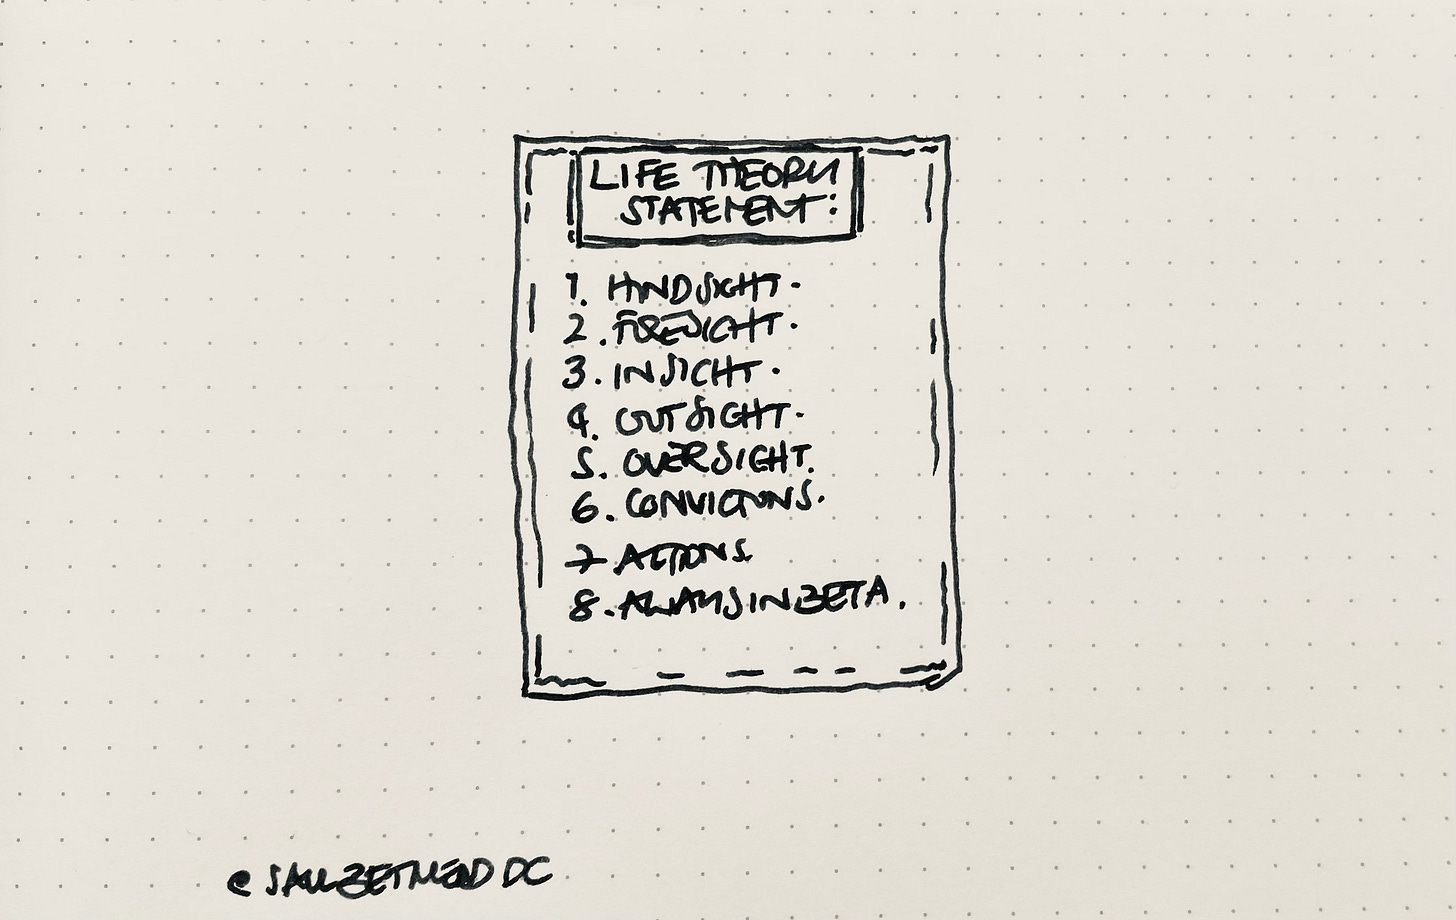 LIFE THEORY
STATEMENT:
1. HINDSIGHT.
2. FORESIGHT.
3. INSIGHT.
4. OUTSIGHT.
5. OVERSIGHT.
6. CONVICTIONS.
7 ACTIONS.
8. ALWAYS IN BETA.